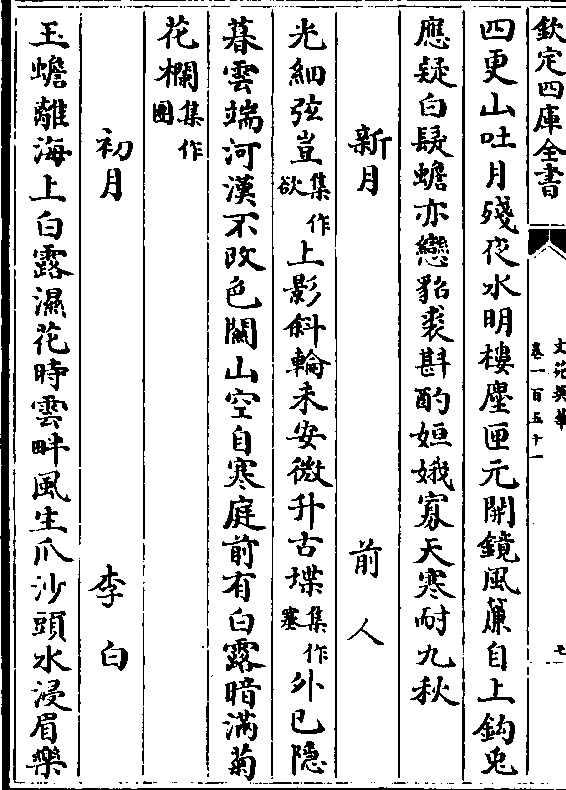 欽定四庫全書
文苑英華
卷一百五十一
七
四更山吐月殘夜水明樓塵匣元開鏡風簾自上鈎兔
應疑白髮蟾亦戀貂裘斟酌姮娥寡天寒耐九秋
新月 前人
光細弦豈集作欲上影斜輪未安微升古堞集作塞外已隱
暮雲端河漢不改色關山空自寒庭前有白露暗滿菊
花欄集作團
初月 李白
玉蟾離海上白露濕花時雲畔風生爪沙頭水浸眉樂